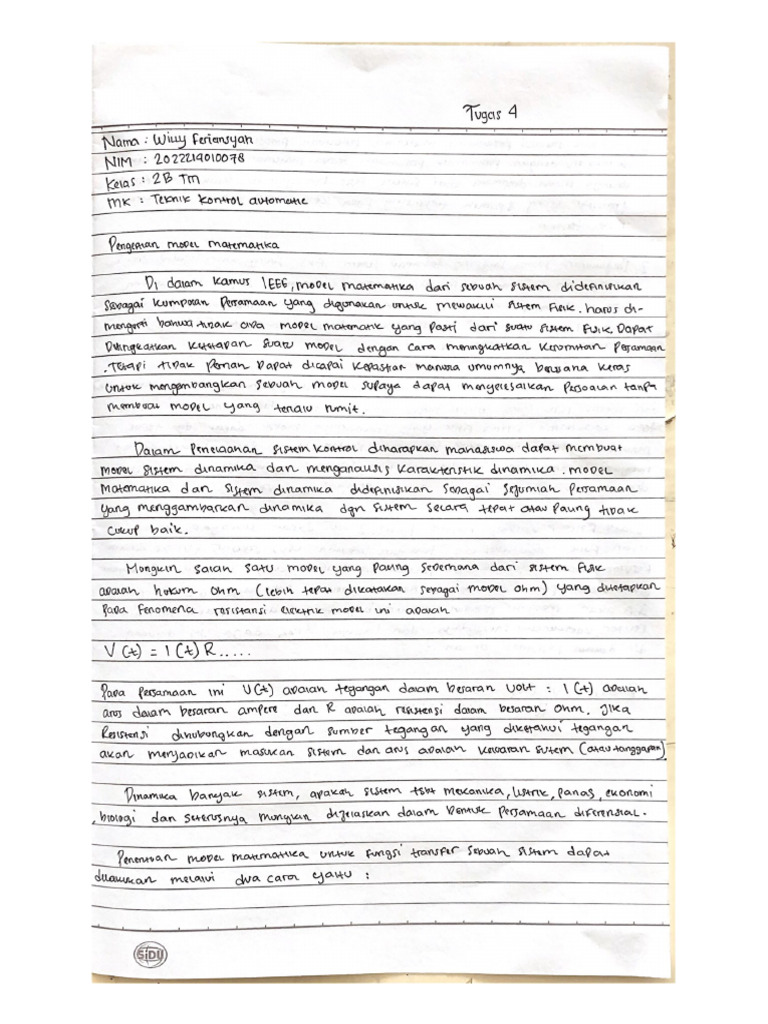 Tugas 4
Nama : Willy Feriansyah
NIM : 2022219010078
Kelas : 2B TM
MK : Teknik Kontrol automatic
Pengertian model matematika
Di dalam kamus IEEE, model matematika dari sebuah sistem didefinifikan
sebagai kumpulan Persamaan yang digunakan untuk mewakili sistem Fisik. harus di-
mengerti bahwa tidak ada model matematik yang pasti dari suatu sistem Fisik. Dapat
Ditingkatkan ketetapan suatu model dengan cara meningkatkan kerumitan Persamaan
. Tetapi tidak pernah Dapat dicapai kepastian manusia umumnya berusaha keras
untuk mengembangkan sebuah model supaya dapat menyelesaikan Persoalan tanpa
membuat model yang terlalu rumit.
Dalam Penelaahan sistem kontrol diharapkan mahasiswa dapat membuat
model sistem dinamika dan menganalisis karakteristik dinamika. model
Matematika dan sistem dinamika didefinisikan sebagai sejumlah Persamaan
yang menggambarkan dinamika dgn sistem secara tepat atau Paling tidak
cukup baik.
Mongkin salah satu model yang Paling sederhana dari sistem Fisik
adalah hokum ohm (lebih tepat dikatakan sebagai model ohm) yang ditetapkan
Pada Fenomena resistansi elektrik model ini adalah
V (t) = I (t) R .....
Pada persamaan ini V(t) adalah tegangan dalam besaran volt : I (t) adalah
arus dalam besaran ampere dan R adalah resistensi dalam besaran ohm. Jika
Resistensi dihubungkan dengan sumber tegangan yang diketahui tegangan
akan menjadikan masukan sistem dan arus adalah keluaran sistem (atau tanggapan).
Dinamika banyak sistem, apakah sistem tsbt mekanika, listrik, panas, ekonomi
, biologi dan seterusnya mungkin dijelaskan dalam bentuk Persamaan diferensial.
Penentuan model matematika untuk fungsi transfer sebuah sistem dapat
dilakukan melalui dua cara yaitu :
SIDU